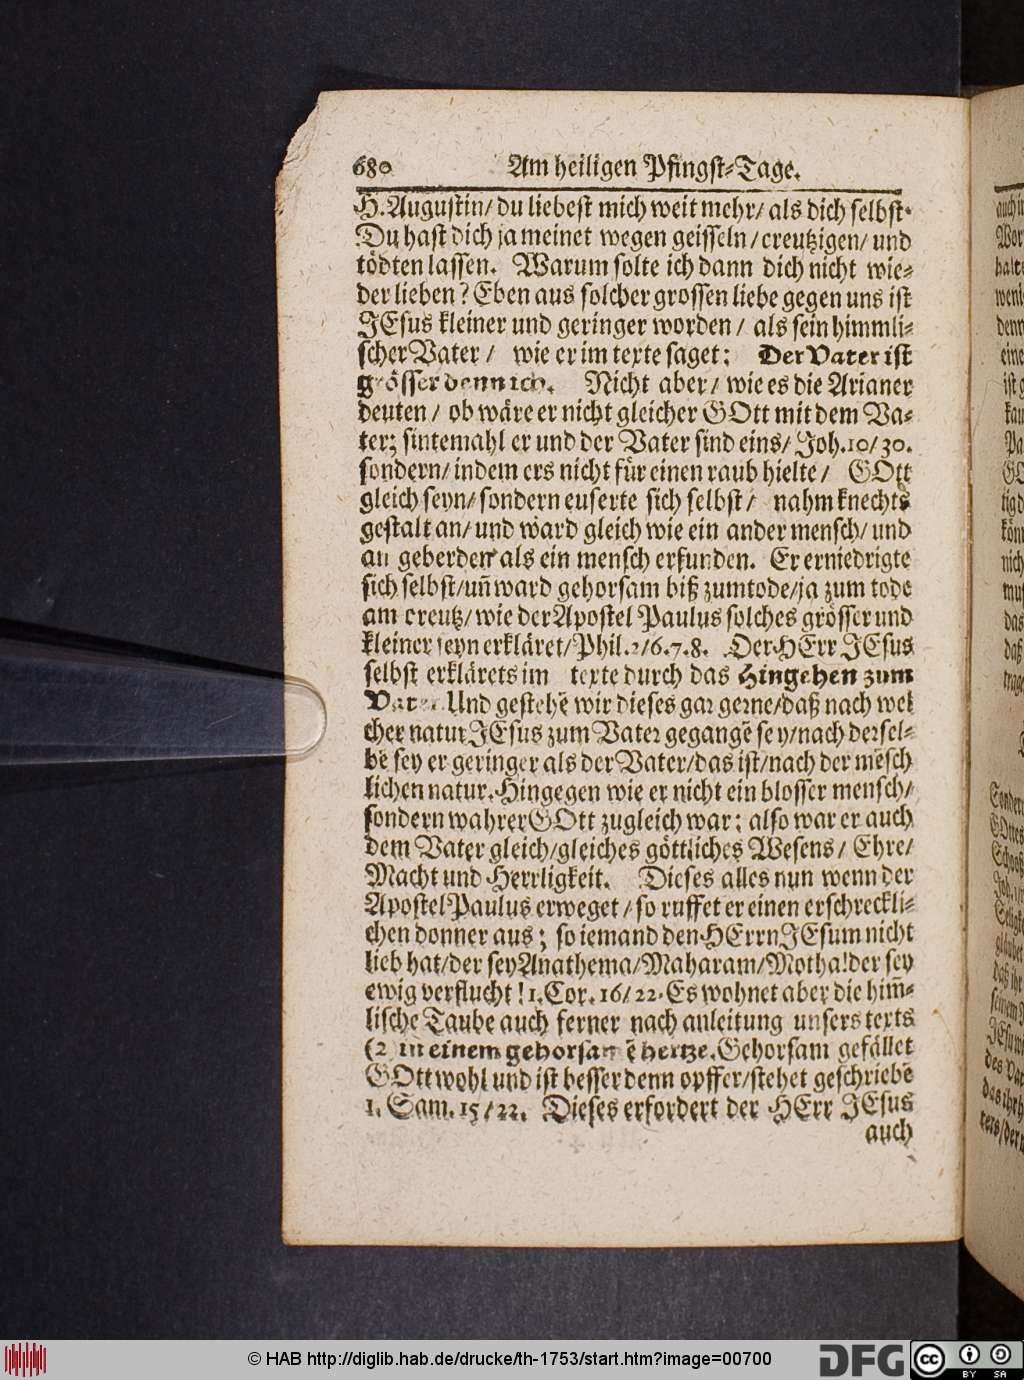 680 Am heiligen Pfingst-Tage.
H. Augustin/ du liebest mich weit mehr/ als dich selbst.
Du hast dich ja meinet wegen geisseln/ creutzigen/ und
tödten lassen. Warum solte ich dann dich nicht wie-
der lieben? Eben aus solcher grossen liebe gegen uns ist
JEsus kleiner und geringer worden/ als sein himmli-
scher Vater/ wie er im texte saget: Der Vater ist
grösser denn ich. Nicht aber/ wie es die Arianer
deuten/ ob wäre er nicht gleicher GOtt mit dem Va-
ter; sintemahl er und der Vater sind eins/ Joh. 10/30.
sondern/ indem ers nicht für einen raub hielte/ GOtt
gleich seyn/ sondern euserte sich selbst/ nahm knechts
gestalt an/ und ward gleich wie ein ander mensch/ und
an geberden als ein mensch erfunden. Er erniedrigte
sich selbst/ uñ ward gehorsam biß zum tode/ ja zum tode
am creutz/ wie der Apostel Paulus solches grösser und
kleiner seyn erkläret/ Phil. 2/6.7.8. Der HErr JEsus
selbst erklärets im texte durch das Hingehen zum
Vater. Und gestehẽ wir dieses gar gerne/ daß nach wel
cher natur JEsus zum Vater gegangẽ sey/ nach dersel-
bẽ sey er geringer als der Vater/ das ist/ nach der mẽsch
lichen natur. Hingegen wie er nicht ein blosser mensch/
sondern wahrer GOtt zugleich war; also war er auch
dem Vater gleich/ gleiches göttliches Wesens/ Ehre/
Macht und Herrligkeit. Dieses alles nun wenn der
Apostel Paulus erweget/ so ruffet er einen erschreckli-
chen donner aus; so iemand den HErrn JEsum nicht
lieb hat/ der sey Anathema/ Maharam/ Motha! der sey
ewig verflucht! 1. Cor. 16/22. Es wohnet aber die him̃-
lische Taube auch ferner nach anleitung unsers texts
(2 in einem gehorsamẽ hertze. Gehorsam gefället
GOtt wohl und ist besser denn opffer/ stehet geschriebẽ
1. Sam. 15/22. Dieses erfordert der HErr JEsus
auch
© HAB http://diglib.hab.de/drucke/th-1753/start.htm?image=00700
DFG
cc BY SA